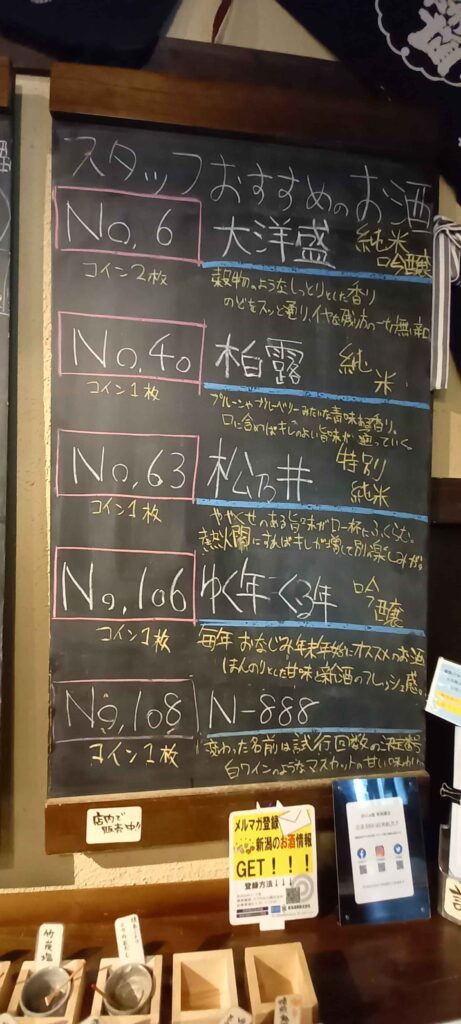 スタッフおすすめのお酒
No.6
大洋盛
純米
吟醸
コイン2枚
穀物のようなしっとりとした香り
のどをスッと通り、イヤな残り
No.40
柏露
純
米
コイン1枚
プルーンやブルーベリーみたいな
口に含めばキレのよい旨味が
No.63
松乃井
特別
純米
コイン1枚
ややくせのある旨味が口一杯にふくらむ。
熱火燗にすればキレが増して別の楽しみが。
No.106
ゆく年くる年
吟
醸
コイン1枚
毎年おなじみ年末年始にオススメのお酒
ほんのりとした甘味と新酒のフレッシュ感。
No.108
N-888
コイン1枚
変わった名前は試行回数の
白ワインのようなマスカットの甘い味わい
店内で
販売中!!
メルマガ登録
新潟のお酒情報
GET!!!
登録方法↓↓↓
竹炭塩